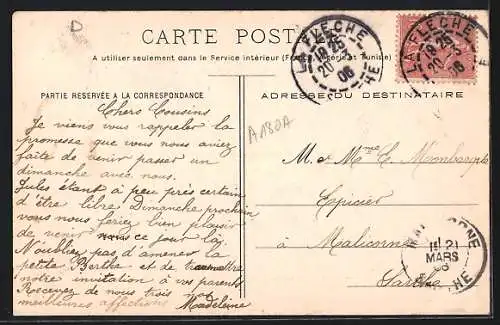 D
CARTE POSTALE
A utiliser seulement dans le Service intérieur (France, Algérie et Tunisie)
PARTIE RÉSERVÉE A LA CORRESPONDANCE
Chers Cousins
Je viens vous rappeler la
promesse que vous nous aviez
faite de venir passer un
dimanche avec nous.
Jules étant à peu près certain
d'être libre Dimanche prochain
vous nous feriez bien plaisir
de venir ce jour là.
N'oubliez pas d'amener la
petite Berthe et de transmettre
notre invitation à vos parents
Recevez de nous trois
meilleures affections Madeleine
LA FLECHE
18 25
20 3
06
LA FLECHE
18 25
20 3
06
ADRESSE DU DESTINATAIRE
A180A
M. et Mme C.
Epicier
à Malicorne
Sarthe
MALICORNE
21
MARS
SARTHE